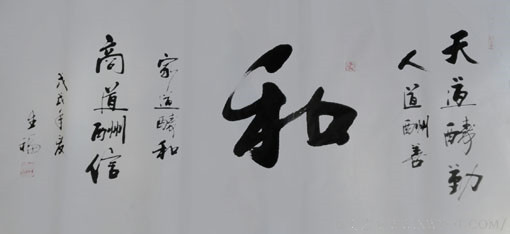 天道酬勤
人道酬善
和
家道酬和
商道酬信
戊戌年夏